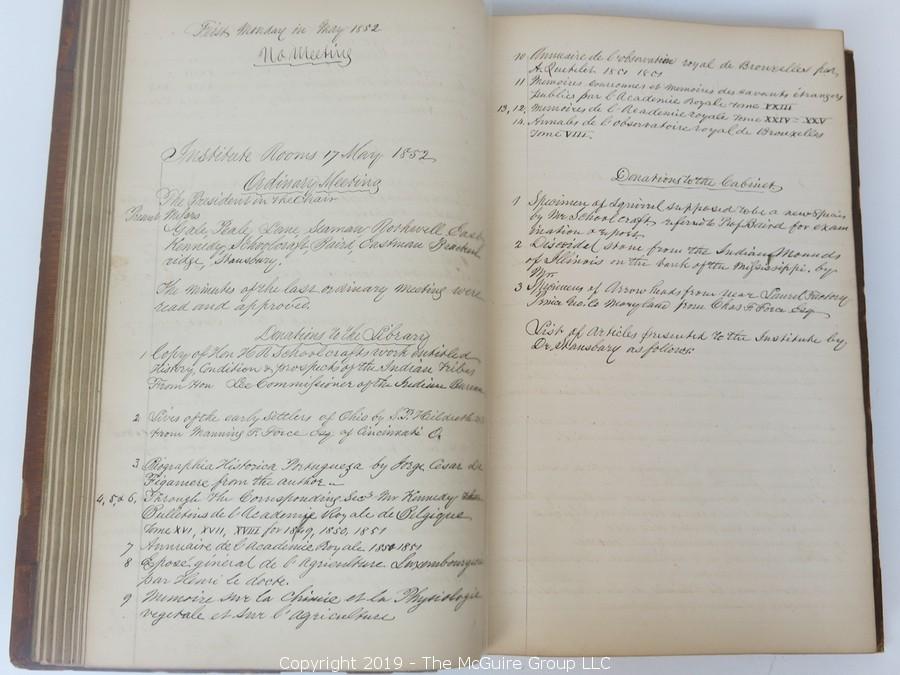 First Monday in May 1852
No Meeting
Institute Rooms 17 May 1852
Ordinary Meeting
The President in the Chair
Present Messrs
Gale, Peale, Lane, Seaman, Rockwell, East
Kennedy, Schoolcraft, Baird, Eastman Bracken
ridge, Stansbury.
The minutes of the last ordinary meeting were
read and approved.
Donations to the Library
1 Copy of Hon H R Schoolcrafts work entitled
History, Condition & prospects of the Indian tribes
From Hon Lee Commissioner of the Indian Bureau
2 Lives of the early Settlers of Ohio by S. P. Hildreth
from Manning F. Force Esq of Cincinnati O.
3 Biographia Historica Portugueza by Jorge Cesar De
Figaniere from the author
4, 5, & 6, Through the Corresponding Secy Mr Kennedy
Bulletins de l'Academie Royale de Belgique
Tome XVI, XVII, XVIII for 1849, 1850, 1851
7 Annuaire de l'Academie Royale 1850 1851
8 Exposé général de l'Agriculture Luxembourgeoise
par Henri le docte.
9 Memoire sur la Chimie et la Physiologie
vegetale et sur l'agriculture
10 Annuaire de l'observatoire royal de Brouxelles par
A. Quetelet 1851 1851
11 Memoires couronnes et memoires des savants étrangers
publies par l'Academie Royale tome XXIII
13, 12, Memoires de l'Academie royale Tome XXIV - XXV
14. Annales de l'observatoire royal de Brouxelles
Tome VIII.
Donations to the Cabinet
1 Specimen of Squirrel supposed to be a new Specis
by Mr Schoolcraft referred to Prof Baird for exam
ination & report.
2 Discoidal stone from the Indian Mounds
of Illinois on the bank of the Mississippi. by
Mr
3 Specimens of Arrow heads from near Laurel Factory
Maryland from Chas F. Force Esq
List of Articles presented to the Institute by
Dr Stansbury as follows
Copyright 2019 - The McGuire Group LLC